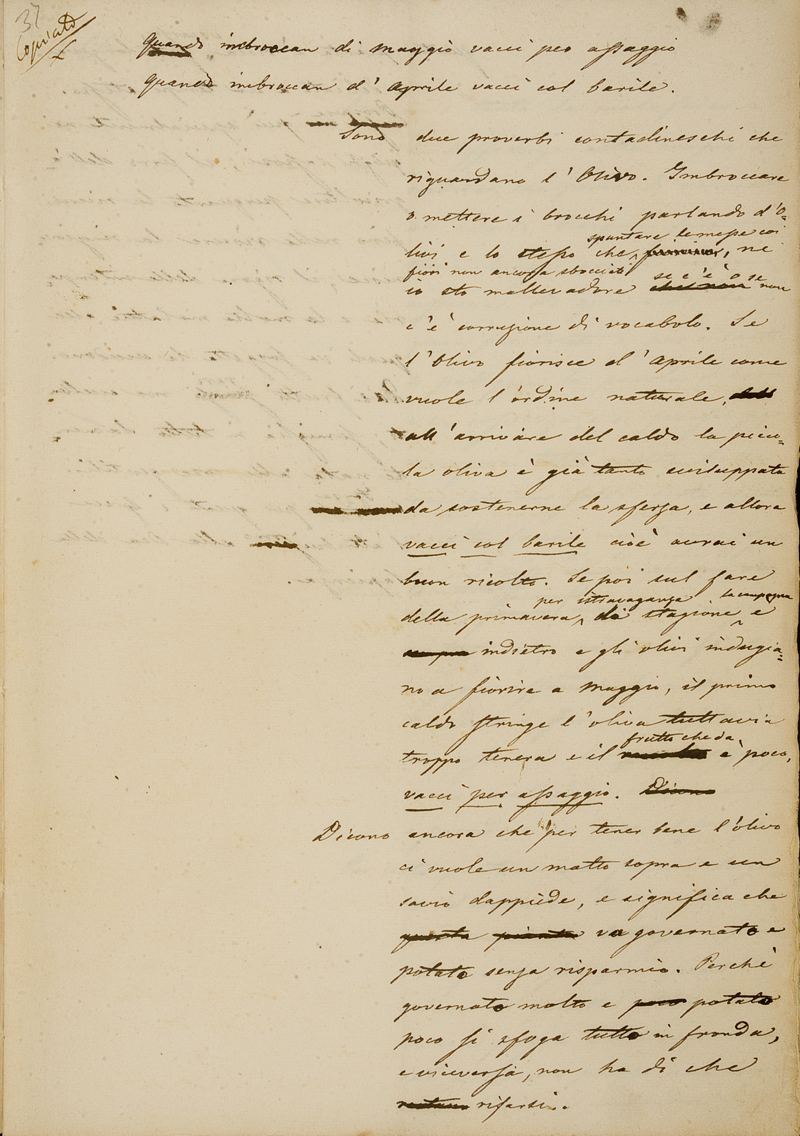 37
Copiato
Quando imbroccan di Maggio vacci per assaggio
quando imbroccan d'Aprile vacci col barile.
Sono due proverbi contadineschi che
riguardano l'Olivo. Imbroccare
o mettere i brocchi parlando d'O=
spuntare le messe coi
livi e lo stesso che, fiorire, nè
fiori non ancora sbocciati se c'è o se
io sto mallevadore che non non
c'è corruzione di vocabolo. Se
l'Olivo fiorisce d'Aprile come
vuole l'ordine naturale,
all'arrivare del caldo la picco=
la oliva è già tanto sviluppata
da sostenerne la sferza, e allora
vacci col barile cioè avrai un
buon ricolto. Se poi sul fare
per istravaganza la campagna
della primavera, di stagione è
indietro e gli olivi indugia=
no a fiorire a Maggio, il primo
caldo stringe l'oliva tuttavia
frutto che dà
troppo tenera e il è poco,
vacci per assaggio. Dicono
Dicono ancora che per tener bene l'olivo
ci vuole un matto sopra e un
savio dappiede, e significa che
questa pianta va governato e
potato senza risparmio. Perchè
governato molto e poco potato
poco si sfoga tutto in fronda,
e viceversa, non ha di che
rifarsi.